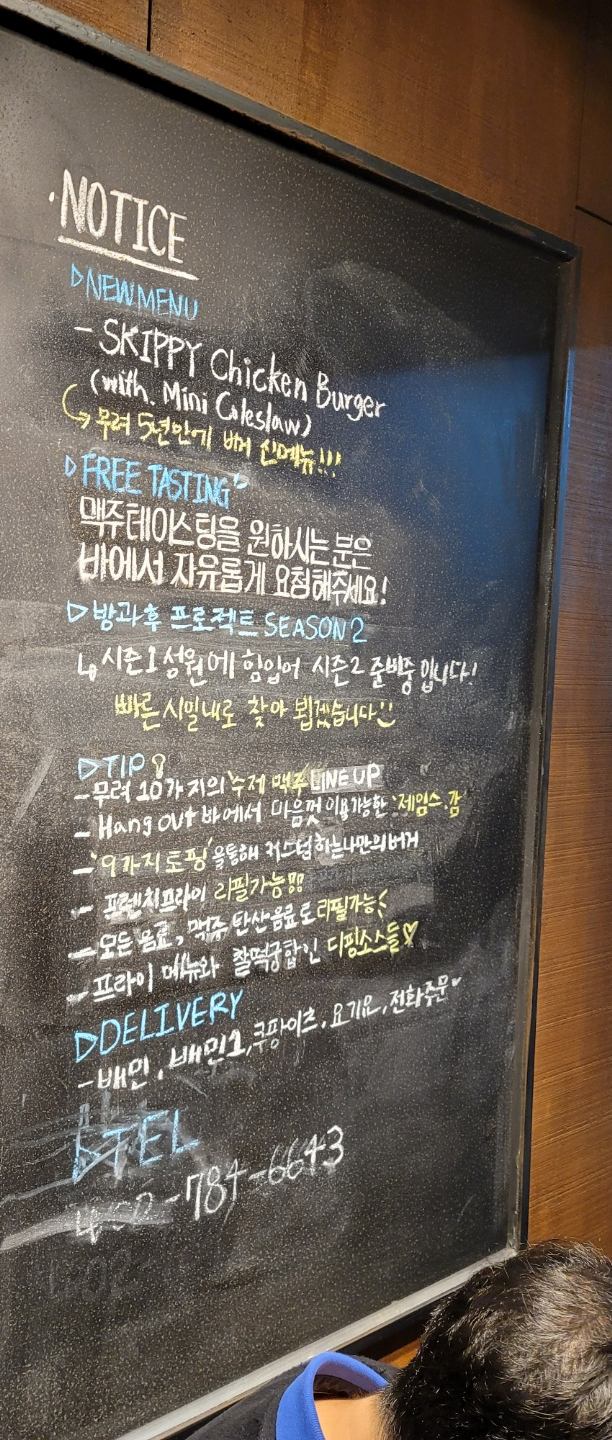 · NOTICE
▷NEW MENU
- SKIPPY Chicken Burger
(with. Mini Coleslaw)
↳ 무려 5년만에 버거 신메뉴!!!
▷FREE TASTING
맥주테이스팅을 원하시는 분은
바에서 자유롭게 요청해주세요!
▷방과후 프로젝트 SEASON 2
↳ 시즌1 성원에 힘입어 시즌2 준비중 입니다!
빠른 시일내로 찾아 뵙겠습니다
▷TIP
- 무려 10가지의 수제 맥주 LINE UP
- Hang out 바에서 마음껏 이용가능한 '제임스.감'
- '9가지 토핑'을 통해 커스텀 하는 나만의 버거
- 프렌치프라이 리필가능
- 모든 음료, 맥주, 탄산음료로 리필가능
- 프라이 메뉴와 찰떡궁합인 디핑소스들♡
▷DELIVERY
- 배민, 배민1, 쿠팡이츠, 요기요, 전화주문♥
▷TEL
-784-6643